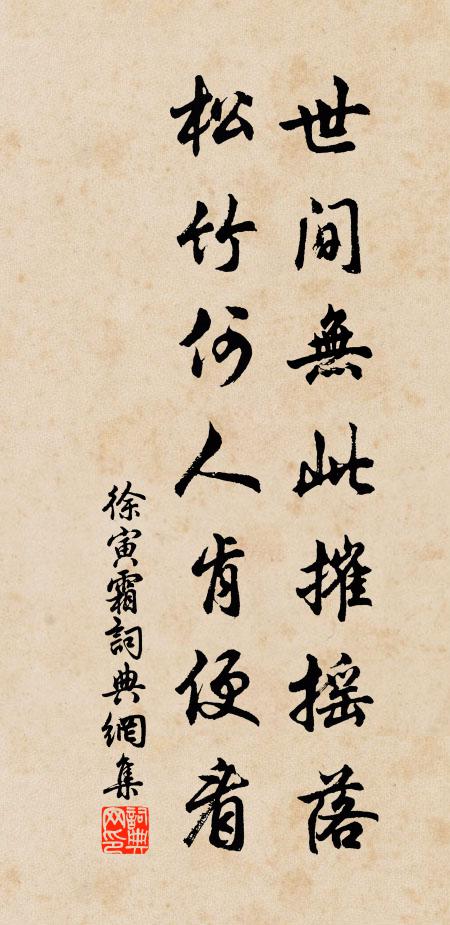 世間無此摧摇落
松竹何人肯便看
徐寅霜詞典網集
詞典网印